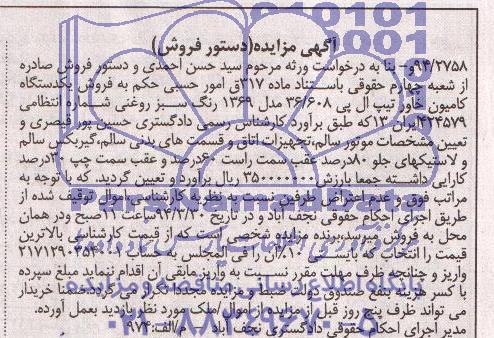 آگهی مزایده(دستور فروش)
۹۴/۲۷۵۸و- بنا به درخواست ورثه مرحوم سید حسن احمدی و دستور فروش صادره
از شعبه چهارم حقوقی باستناد ماده ۳۱۷ق امور حسبی حکم به فروش یکدستگاه
کامیون خاور تیپ ال پی ۳۶/۶۰۸ مدل ۱۳۶۹ رنگ سبز روغنی شماره انتظامی
۴۲۴۵۷۹ایران ۱۳که طبق برآورد کارشناس رسمی دادگستری حسین پور قیصری و
تعیین مشخصات موتور سالم،تجهیزات اتاق و قسمت های بدنی سالم،گیربکس سالم
و لاستیکهای جلو ۸۰درصد عقب سمت راست ۶۰درصد و عقب سمت چپ ۳۰درصد
کارایی داشته جمعا بارزش ۳۵۰۰۰۰۰۰۰ ریال برآورد و تعیین گردید. که با توجه به
مراتب فوق و عدم اعتراض طرفین نسبت به نظریه کارشناسی،اموال توقیف شده از
طریق اجرای احکام حقوقی نجف آباد و در تاریخ ۹۴/۴/۳۰ساعت ۱۱ صبح ودر همان
محل به فروش میرسد.برنده مزایده شخصی است که از قیمت کارشناسی بالاترین
قیمت را انتخاب که بایستی ۱۰٪آن را فی المجلس به حساب
واریز و چنانچه ظرف مهلت مقرر نسبت به واریز مابقی آن اقدام ننماید مبلغ سپرده
با کسر هزینه بنفع صندوق دولت ضبط و هزینه مجددا تکرار می گردد.ضمنا خریدار
می تواند ظرف پنج روز قبل از مزایده از اموال/ملک مورد نظر بازدید بعمل آورده.
مدیر اجرای احکام حقوقی دادگستری نجف آباد م الف:۹۷۴
پایگاه اطلاع رسانی مناقصه و مزایده
۰۲۱-۸۸۳۴۹۶۷۰-۵